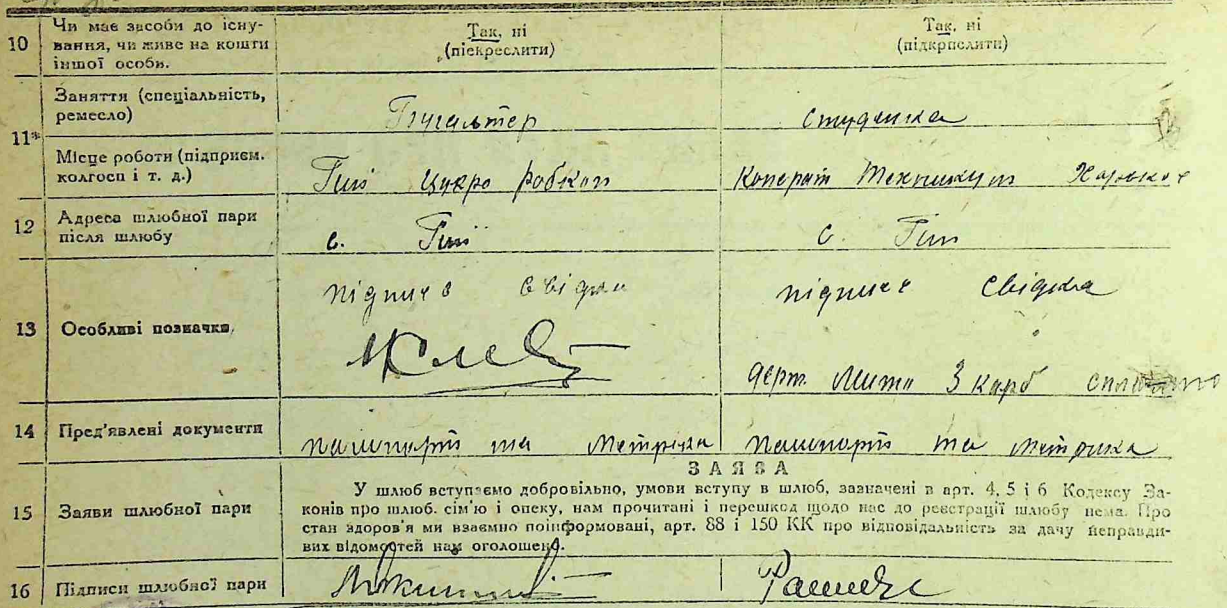 10 Чи має засоби до існу-
вання, чи живе на кошти
іншої особи.
Так, ні
(піекреслити)
Так, ні
(підкрпслити)
11* Заняття (спеціальність,
ремесло)
Бугальтер
студенка
Місце роботи (підприєм.
колгосп і т. д.)
Цукро робкоп
Коперат Технікум
12 Адреса шлюбної пари
після шлюбу
с.
с.
13 Особливі позначки
підпис свідка
підпис Свідка
держ. Мито 3 карб
14 Пред'явлені документи
пашпорт та Метрика
пашпорт та метрика
15 Заяви шлюбної пари
ЗАЯВА
У шлюб вступаємо добровільно, умови вступу в шлюб, зазначені в арт. 4, 5 і 6 Кодексу За-
конів про шлюб. сім'ю і опеку, нам прочитані і перешкод щодо нас до реєстрації шлюбу нема. Про
стан здоров'я ми взаємно поінформовані, арт. 88 і 150 КК про відповідальність за дачу неправди-
вих відомостей нам оголошено.
16 Підписи шлюбної пари